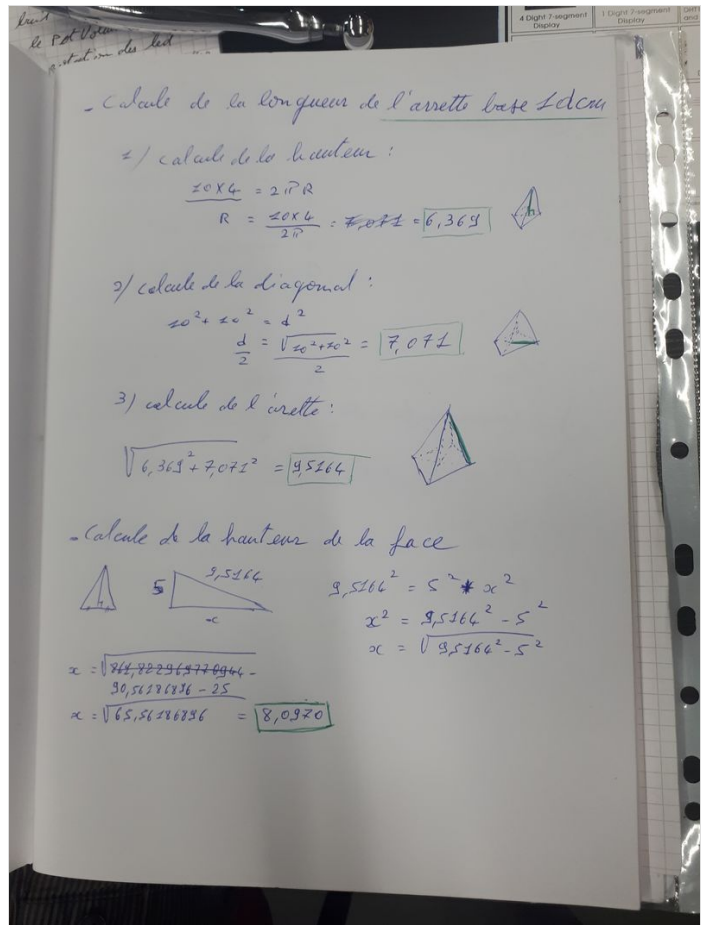 bruit
le Pot Volum
des led
4 Dight 7-segment
Display
1 Dight 7-segment
Display
and
- Calcule de la longueur de l'arrette base 1dcm
1/ calcule de la hauteur :
10 x 4 = 2πR
R = 10x4 / 2π = 7,071 = 6,369
h
2/ calcule de la diagonal :
10² + 10² = d²
d/2 = √10²+10² / 2 = 7,071
3/ calcule de l'arette :
√6,369² + 7,071² = 9,5164
- Calcule de la hauteur de la face
h
5
9,5164
x
9,5164² = 5² * x²
x² = 9,5164² - 5²
x = √9,5164² - 5²
x = √
90,56186896 - 25
x = √65,56186896 = 8,0970